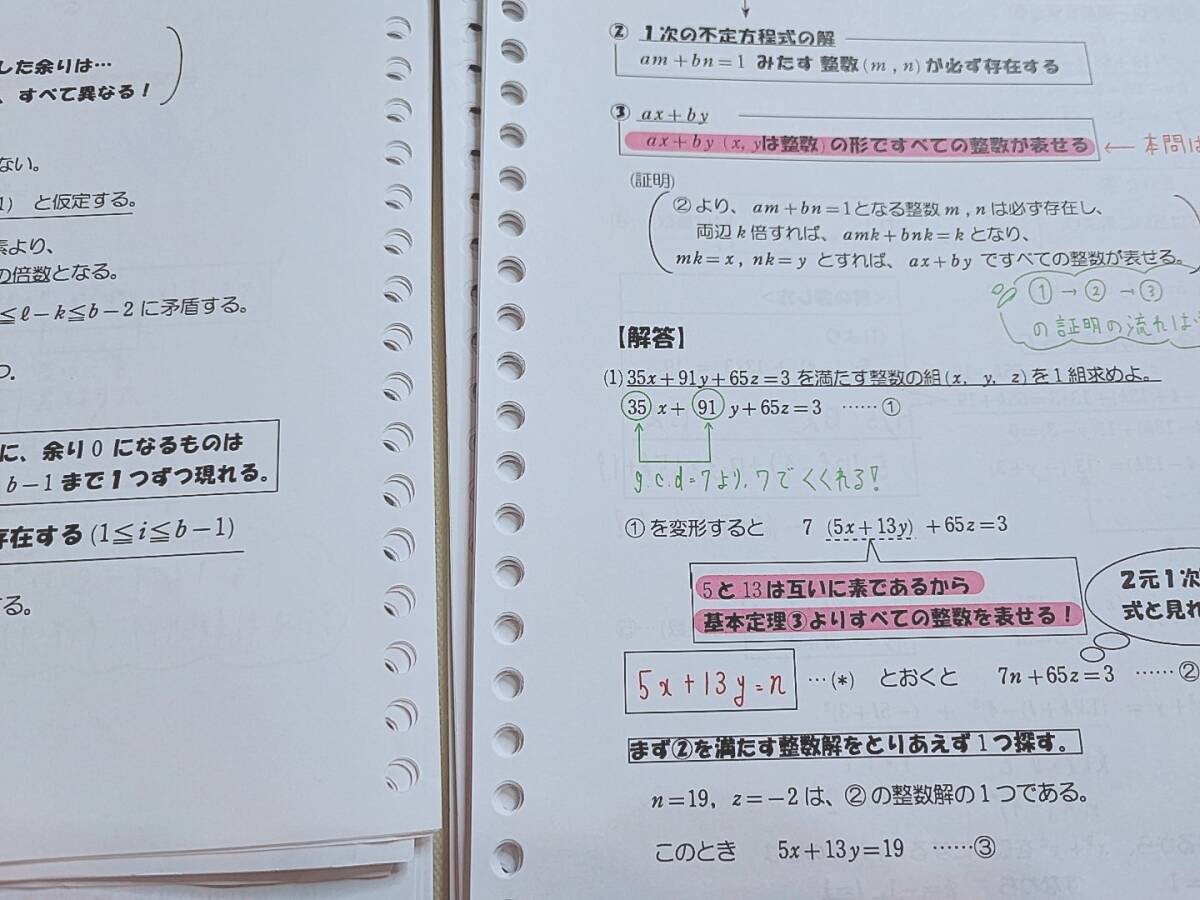 した余りは…
、すべて異なる！
ない。
1) と仮定する。
素より、
の倍数となる。
≦ℓ－k≦b－2に矛盾する。
つ.
に、余り0になるものは
b－1まで1つずつ現れる。
存在する(1≦i≦b－1)
する。
② 1次の不定方程式の解
am＋bn＝1 みたす 整数(m , n)が必ず存在する
③ ax＋by
ax＋by (x, yは整数)の形ですべての整数が表せる
← 本問は
(証明)
②より、am＋bn＝1となる整数m , nは必ず存在し、
両辺k倍すれば、amk＋bnk＝kとなり、
mk＝x , nk＝y とすれば、ax＋by ですべての整数が表せる。
①→②→③
の証明の流れは
【解答】
(1) 35x＋91y＋65z＝3 を満たす整数の組(x, y, z)を1組求めよ。
35x＋91y＋65z＝3 ……①
g.c.d=7より、7でくくれる!
①を変形すると 7 (5x＋13y) ＋65z＝3
5と13は互いに素であるから
基本定理③よりすべての整数を表せる！
2元1次
式と見れ
5x+13y=n …(*) とおくと 7n＋65z＝3 ……②
まず②を満たす整数解をとりあえず1つ探す。
n＝19, z＝－2は、②の整数解の1つである。
このとき 5x＋13y＝19 ……③